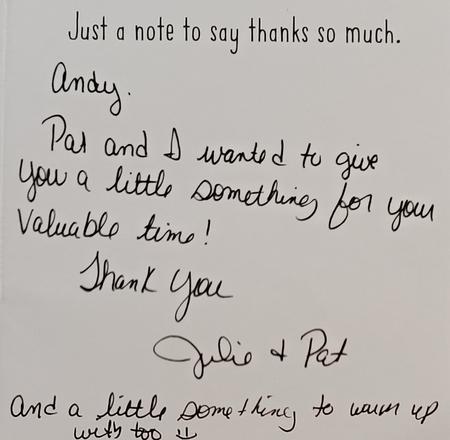 Just a note to say thanks so much.
Andy.
Pat and I wanted to give
you a little something for your
Valuable time!
Thank You
Julie & Pat
And a little something to warm up
with too